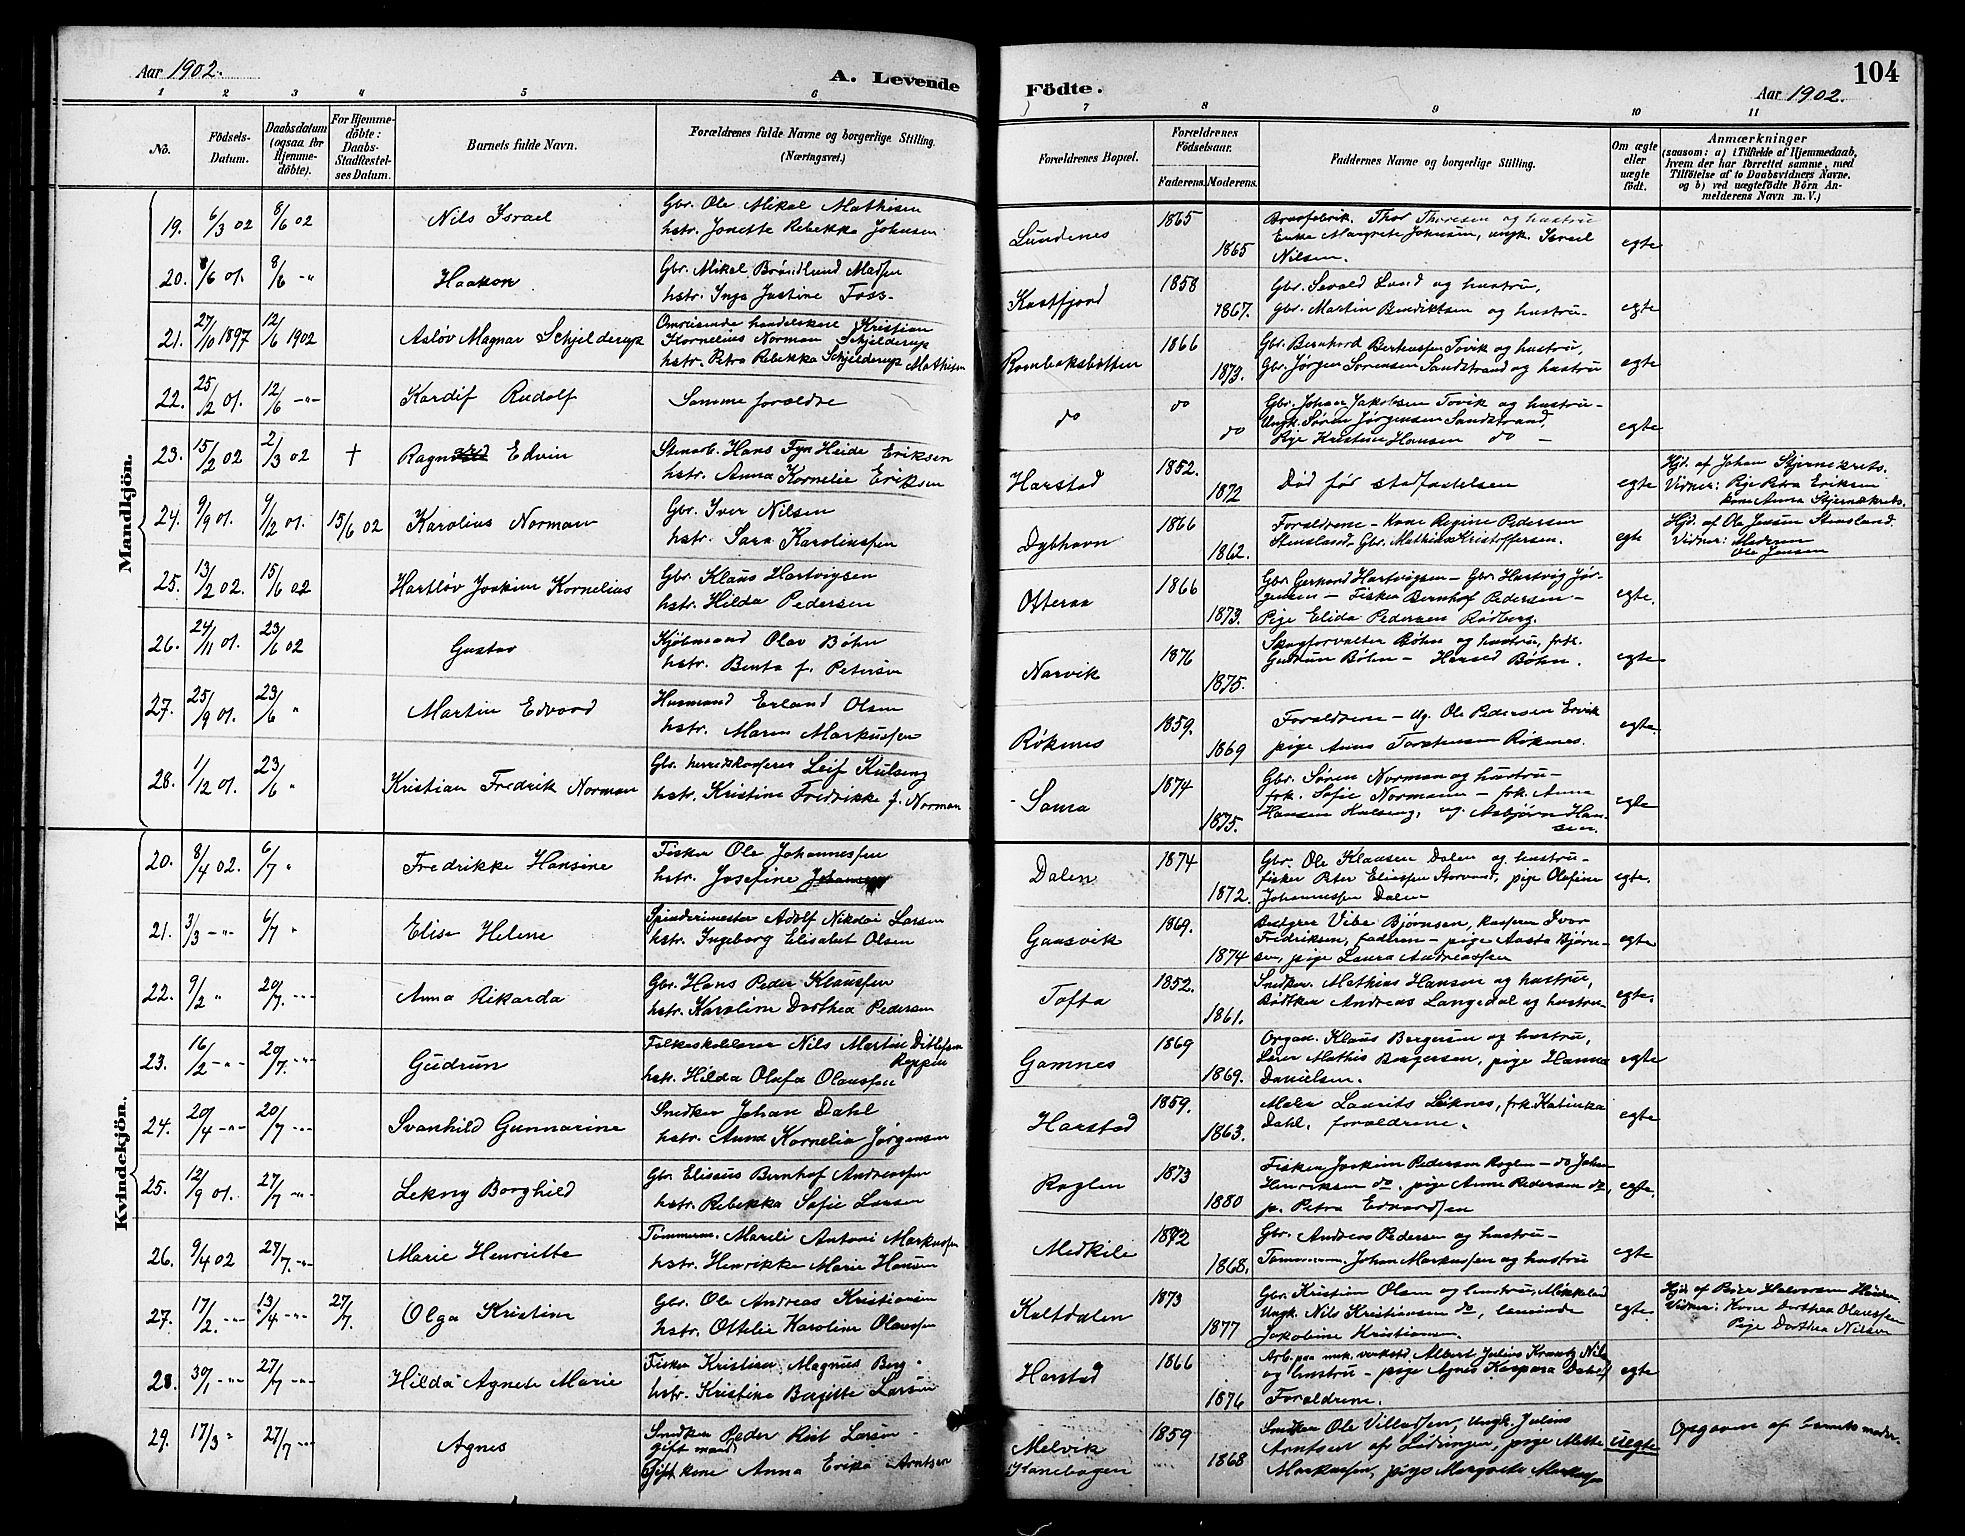 Aar 1902.
A. Levende
Födte.
104
Aar 1902.
1 2 3 4 5 6 7 8 9 10 11
No.
Födsels-
Datum.
Daabsdatum
(ogsaa for
Hjemme-
döbte).
For Hjemme-
döbte:
Daabs-
Stadfæstel-
ses Datum.
Barnets fulde Navn.
Forældrenes fulde Navne og borgerlige Stilling.
(Næringsvei.)
Forældrenes Bopæl.
Forældrenes
Födselsaar.
Faderens. Moderens.
Faddernes Navne og borgerlige Stilling.
Om ægte
eller
uægte
født.
Anmærkninger
(saasom: a) i Tilfælde af Hjemmedaab,
hvem der har forrettet samme, med
Tilföielse af to Daabsvidners Navne.
og b) ved uægtefödte Börn An-
melderens Navn m. V.)
Mandkjön.
19. 6/3 02 8/6 02 Nils Israel
Gbr. Ole Mikal Mathisen
hstr. Jonette Rebekka Johnsen
Lundenes 1865 1865
Thor Thoresen og hustru
Enke Margrete Johnsen, ungk. Israel
Nilsen.
egte
20. /6 01. 8/6 -"- Haakon
Gbr. Mikal Brøndlund Madsen
hstr. Inga Justine Foss-
Kastfjord 1858 1867.
Gbr. Sevald Lund og hustru,
Gbr. Martin Bendiktsen og hustru-
egte
21. 27/10 1897 12/6 1902 Asløv Magnar Schjelderup
Omreisende handelskar Kristian
Kornelius Norman Schjelderup
hstr. Petra Rebekka Schjelderup Mathisen
Rombaksbotten 1866 1873.
Gbr. Bernhard Berthussen Tovik og hustru,
Gbr. Jørgen Sørensen Sandstrand og hustru
egte
22. 25/12 01. 12/6 -"- Kardif Rudolf
Samme foreldre
do do do
Gbr. Johan Jakobsen Tovik og hustru-
Ungk. Søren Jørgensen Sandstrand,
Pige Kristine Hansen do -
egte
23. 15/2 02 2/3 02 † Edvin
Stenarb. Hans Fyn Heide Eriksen
hstr. Anna Kornelie Eriksen
Harstad 1852. 1872
Død før stadfæstelsen
egte
Hjd. af Johan Stjernekrets.
Vidner: Pige Petra Eriksen
Kone Anna Stjernekrets.
24. 9/9 01. 9/12 01. 15/6 02 Karolius Norman
Gbr. Iver Nilsen
hstr. Sara Karoliussen
Dybhavn 1866 1862.
Foreldrene - Kone Regine Pedersen
Stensland, Gbr. Mathias Kristoffersen.
egte
Hjd. af Ole Jensen Stensland.
Vidner: Moderen
Ole Jensen
25. 13/2 02. 15/6 02 Hartløv Joakim Kornelius
Gbr Klaus Hartvigsen
hstr. Hilda Pedersen
Otteraa 1866 1873.
Gbr. Gerhard Hartvigsen - Gbr Hartvig Jør-
gensen - Fisker Bernhof Pedersen -
Pige Elida Pedersen Rødberg.
egte.
26. 24/11 01. 23/6 02 Gustav
Kjøbmand Olav Bøhn
hstr. Benta f. Petersen
Narvik 1876 1875.
Skogforvalter Bøhn og hustru, frk.
Gudrun Bøhn - Harald Bøhn.
egte
27. 25/9 01. 23/6 " Martin Edvard
Husmand Erland Olsen
hstr. Maren Markussen
Røkenes 1859. 1869
Foreldrene - Ug. Ole Pedersen Ervik
pige Anna Torstensen Røkenes.
egte.
28. 1/12 01. 23/6 " Kristian Fredrik Norman
Gbr. herredskasserer Leif Kulseng
hstr. Kristine Fredrikke f. Norman
Sama 1874 1875.
Gbr. Søren Norman og hustru -
frk. Sofie Normann - frk. Anna
Hansen Kulseng, ug. Asbjørn Han-
sen.
egte
Kvindekjön.
20. 8/4 02. 6/7 " Fredrikke Hansine
Fisker Ole Johannessen
hstr. Josefine
Dalen 1874 1872.
Gbr. Ole Klausen Dalen og hustru -
fisker Peter Eliassen Storvand, pige Olefine
Johannessen Dalen
egte.
21. 3/3 -"- 6/7 " Elise Helene
Spinderimester Adolf Nikolai Larsen
hstr. Ingeborg Elisabet Olsen
Gausvik 1869. 1874
Bestyrer Vibe Bjørnsen, kasserer Ivar
Fredriksen, faderen - pige Aasta Bjørn-
sen, pige Laura Andreassen
egte
22. 9/2 " 20/7. -"- Anna Rikarda
Gbr. Hans Peder Klaussen
hstr. Karoline Dorthea Pedersen
Tofta 1852. 1861.
Snedker. Mathias Hansen og hustru,
Bødtker Andreas Langedal og hustru
egte.
23. 16/2 -"- 20/7. -"- Gudrun
Folkeskolelærer Nils Martin Ditlefsen
Roppen
hstr. Hilda Olufa Olaussen
Gamnes 1869 1869.
Organ. Klaus Bergersen og hustru,
Lærer Mathis Bergersen, pige Hanna
Danielsen.
egte
24. 20/4 -"- 20/7 -"- Svanhild Gunnarine
Snedker Johan Dahl
hstr. Anna Kornelia Jørgensen
Harstad 1859. 1863.
Maler Laurits Leiknes, frk. Katinka
Dahl, foreldrene.
egte
25. 12/9 01. 27/7 -"- Lekny Borghild
Gbr. Eliseus Bernhof Andreassen
hstr. Rebekka Sofie Larsen
Roglen 1873 1880
Fisker Joakim Pedersen Roglen - do Johan
Henriksen do, pige Anne Pedersen do,
p. Petra Edvardsen
egte.
26. 9/4 02 27/7. -"- Marie Henriette
Tømmerm. Mareli Antoni Markussen
hstr. Henrikke Marie Hansen
Medkile 1872 1868.
Gbr. Andreas Pedersen og hustru-
Tømmerm. Johan Markussen og hustru
egte
27. 17/2. -"- 13/4 -"- 27/7. Olga Kristine
Gbr. Ole Andreas Kristiansen
hstr. Ottelie Karoline Olaussen
Kaltdalen 1873 1877
Gbr. Kristian Olsen og hustru, Mikkelend
Ungk. Nils Kristiansen do,
Jakobine Kristiansen.
egte.
Hjd. af
Vidner: Kone Dorthea Olaussen
Pige Dorthea Nilsen
28. 30/1 -"- 27/7 -"- Hilda Agnete Marie
Fisker Kristian Magnus Berg -
hstr. Kristine Bergitte Larsen
Harstad 1866 1876
Arb. paa mek. verksted Albert Julius Krantz
og hustru - pige Agnes Kaspara
Foreldrene.
egte
29. 17/3 " 27/7 -"- Agnes
Snedker Peder Rist Larsen -
gift mand
Gift kone Anna Erika Arntsen
Melvik
Kanebogen 1859 1868
Snedker Ole Villadsen, Ungk. Julius
Arntsen af Lødingen, pige Mette
Markussen, pige Margrete Markussen
Uegte
Opgaven af barnets moder.